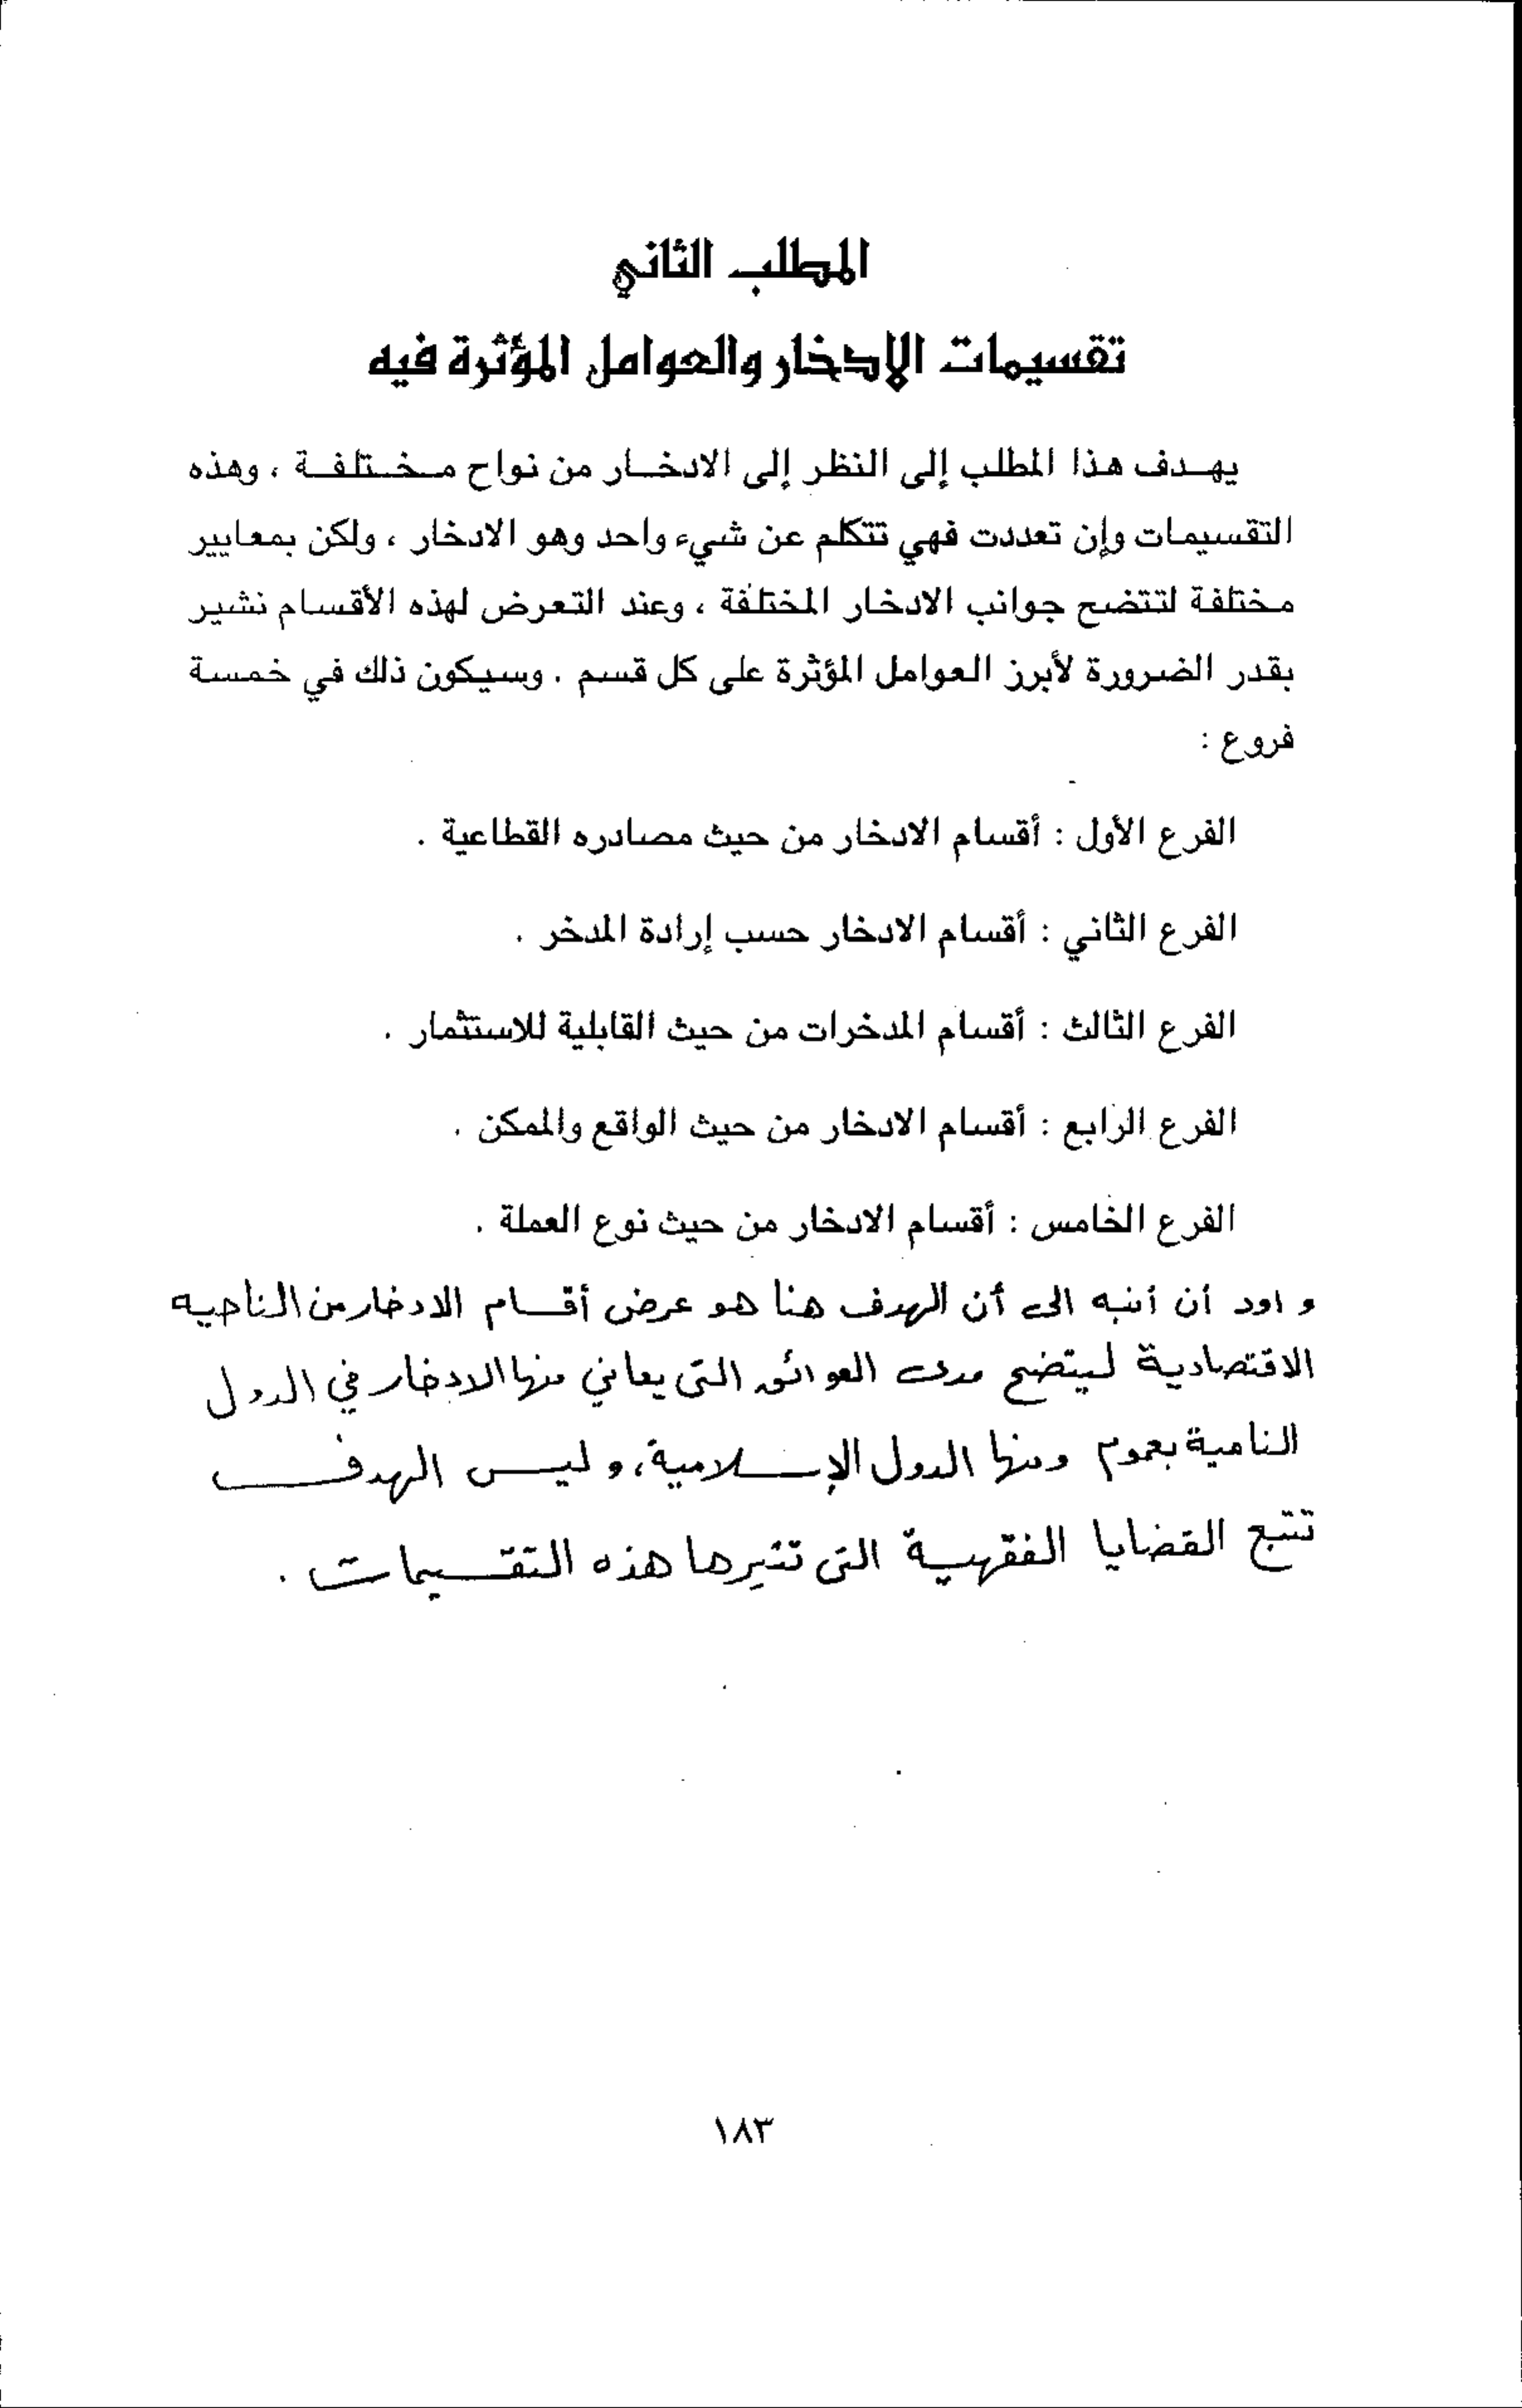 المطلب الثاني
تقسيمات الادخار والعوامل المؤثرة فيه
يهدف هذا المطلب إلى النظر إلى الادخار من نواح مختلفة ، وهذه
التقسيمات وإن تعددت فهي تتكلم عن شيء واحد وهو الادخار ، ولكن بمعايير
مختلفة لتتضح جوانب الادخار المختلفة ، وعند التعرض لهذه الأقسام نشير
بقدر الضرورة لأبرز العوامل المؤثرة على كل قسم . وسيكون ذلك في خمسة
فروع :
الفرع الأول : أقسام الادخار من حيث مصادره القطاعية .
الفرع الثاني : أقسام الادخار حسب إرادة المدخر .
الفرع الثالث : أقسام المدخرات من حيث القابلية للاستثمار .
الفرع الرابع : أقسام الادخار من حيث الواقع والممكن .
الفرع الخامس : أقسام الادخار من حيث نوع العملة .
و اود أن أنبه الى أن الهدف هنا هو عرض أقسام الادخار من الناحيه
الاقتصادية ليتضح مدى العوائق التى يعاني منها الادخار في الدول
النامية بعموم ومنها الدول الإسلامية، وليس الهدف
تتبع القضايا الفقهية التى تثيرها هذه التقسيمات .
١٨٣